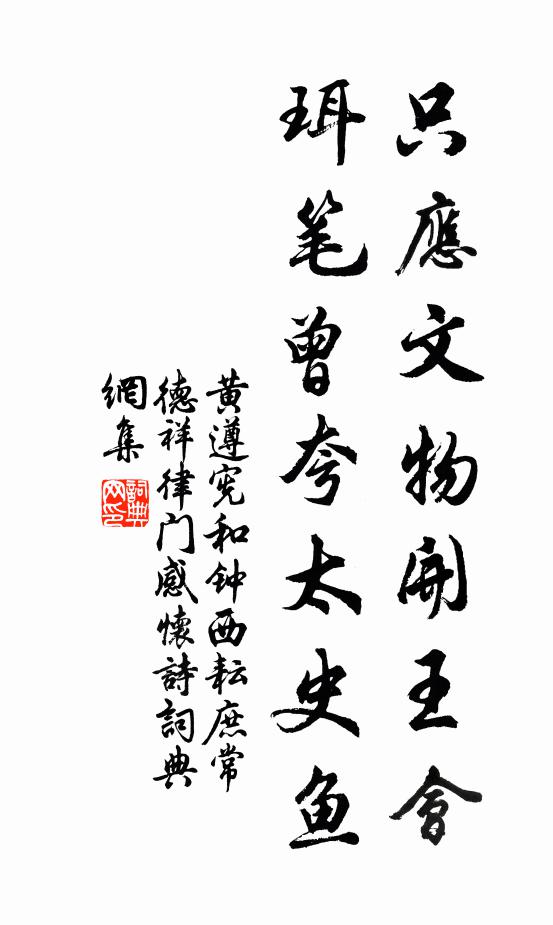 只應文物開王會
珥笔曾夸太史鱼
黄遵宪和钟西耘庶常
德祥律门感懷詩詞典
網集
詞典網印